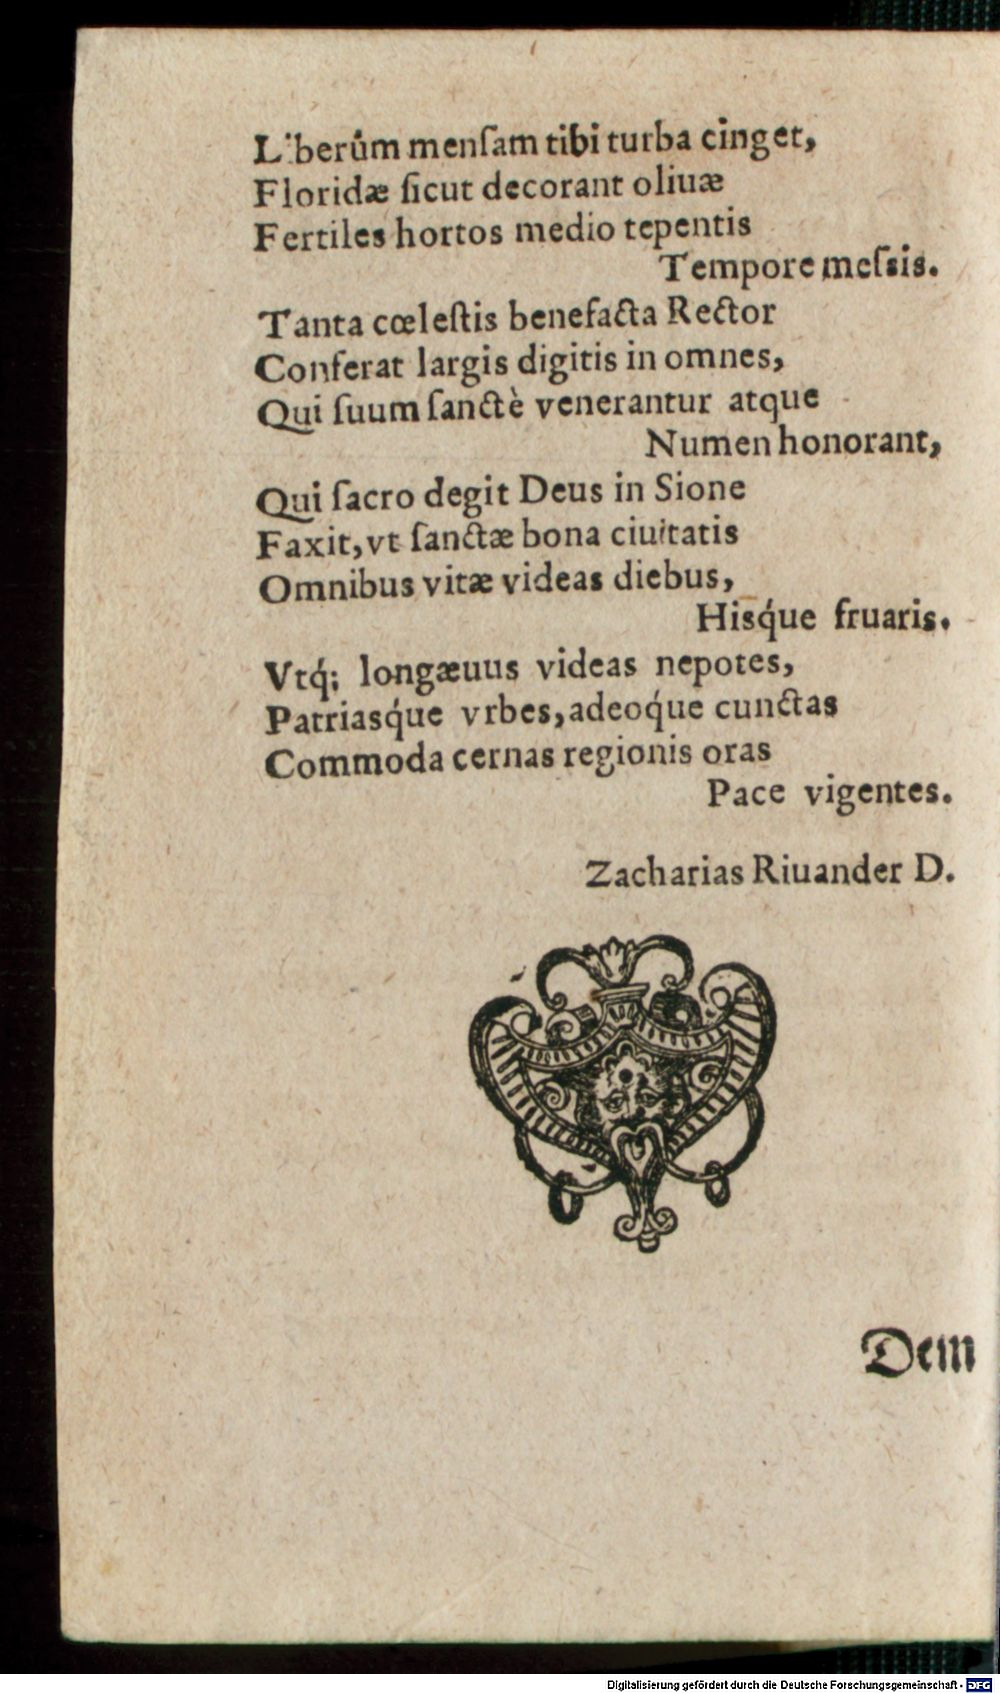 Liberûm menſam tibi turba cinget,
Floridæ ſicut decorant oliuæ
Fertiles hortos medio tepentis
Tempore meſsis.
Tanta cœleſtis benefacta Rector
Conferat largis digitis in omnes,
Qui ſuum ſanctè venerantur atque
Numen honorant,
Qui ſacro degit Deus in Sione
Faxit, vt ſanctæ bona ciuitatis
Omnibus vitæ videas diebus,
Hisq́ue fruaris.
Vtq́; longæuus videas nepotes,
Patriasq́ue vrbes, adeoq́ue cunctas
Commoda cernas regionis oras
Pace vigentes.
Zacharias Riuander D.
Dem
Digitalisierung gefördert durch die Deutsche Forschungsgemeinschaft - DFG